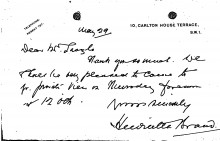 10, CARLTON HOUSE TERRACE,
S.W.1.
May 29.
Dear Mr
Thank you so much. We
shall be very pleased to come to
yr. private view on Thursday
at 12 o'ck
Yours sincerely
Henrietta